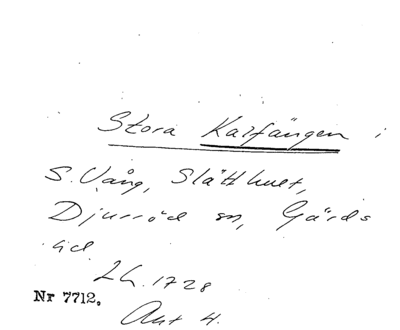 Stora Kalfängen i
S. Vång, Slätthult,
Djurröd sn, Gärds
hd.
Lh. 1728
Nr 7712,
Akt 4.